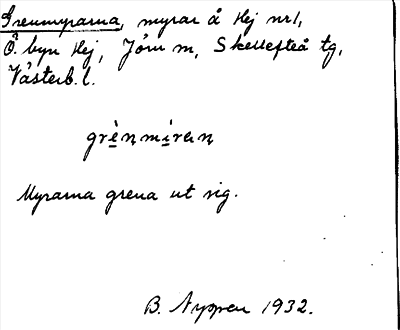 Grenmyrarna, myrar å Hej nr 1,
Ö. byn Hej, Jörn sn, Skellefteå tg,
Västerb. l.
grènmìraɳ
Myrarna grena ut sig.
B. Nyppen 1932.